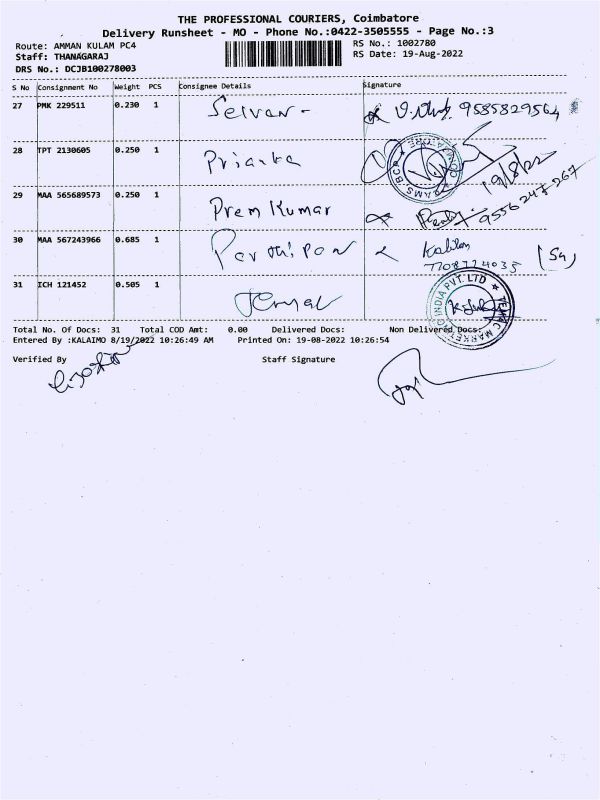 THE PROFESSIONAL COURIERS, Coimbatore
Delivery Runsheet - MO - Phone No.:0422-3505555 - Page No.:3
Route: AMMAN KULAM PC4 RS No.: 1002780
Staff: THANAGARAJ RS Date: 19-Aug-2022
DRS No.: DCJB100278003
S No Consignment No Weight PCS Consignee Details Signature
27 PMK 229511 0.230 1 Selvan - 9585829564
28 TPT 2130605 0.250 1 Prianka 19/8/22
29 MAA 565689573 0.250 1 Prem Kumar
30 MAA 567243966 0.685 1 Parthipan
7708774035
31 ICH 121452 0.505 1
INDIA PVT. LTD ★ TEMAC MARKETING
Total No. Of Docs: 31 Total COD Amt: 0.00 Delivered Docs: Non Delivered Docs:
Entered By :KALAIMO 8/19/2022 10:26:49 AM Printed On: 19-08-2022 10:26:54
Verified By Staff Signature